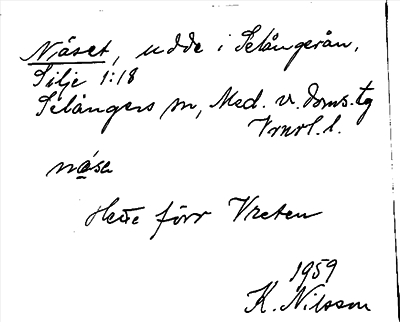 Näset, udde i Selångerån,
Silje 1:18
Selångers sn, Med. v. doms. tg
Vrnrl. l.
näsa
Hette förr Vreten
1959
K. Nilsson